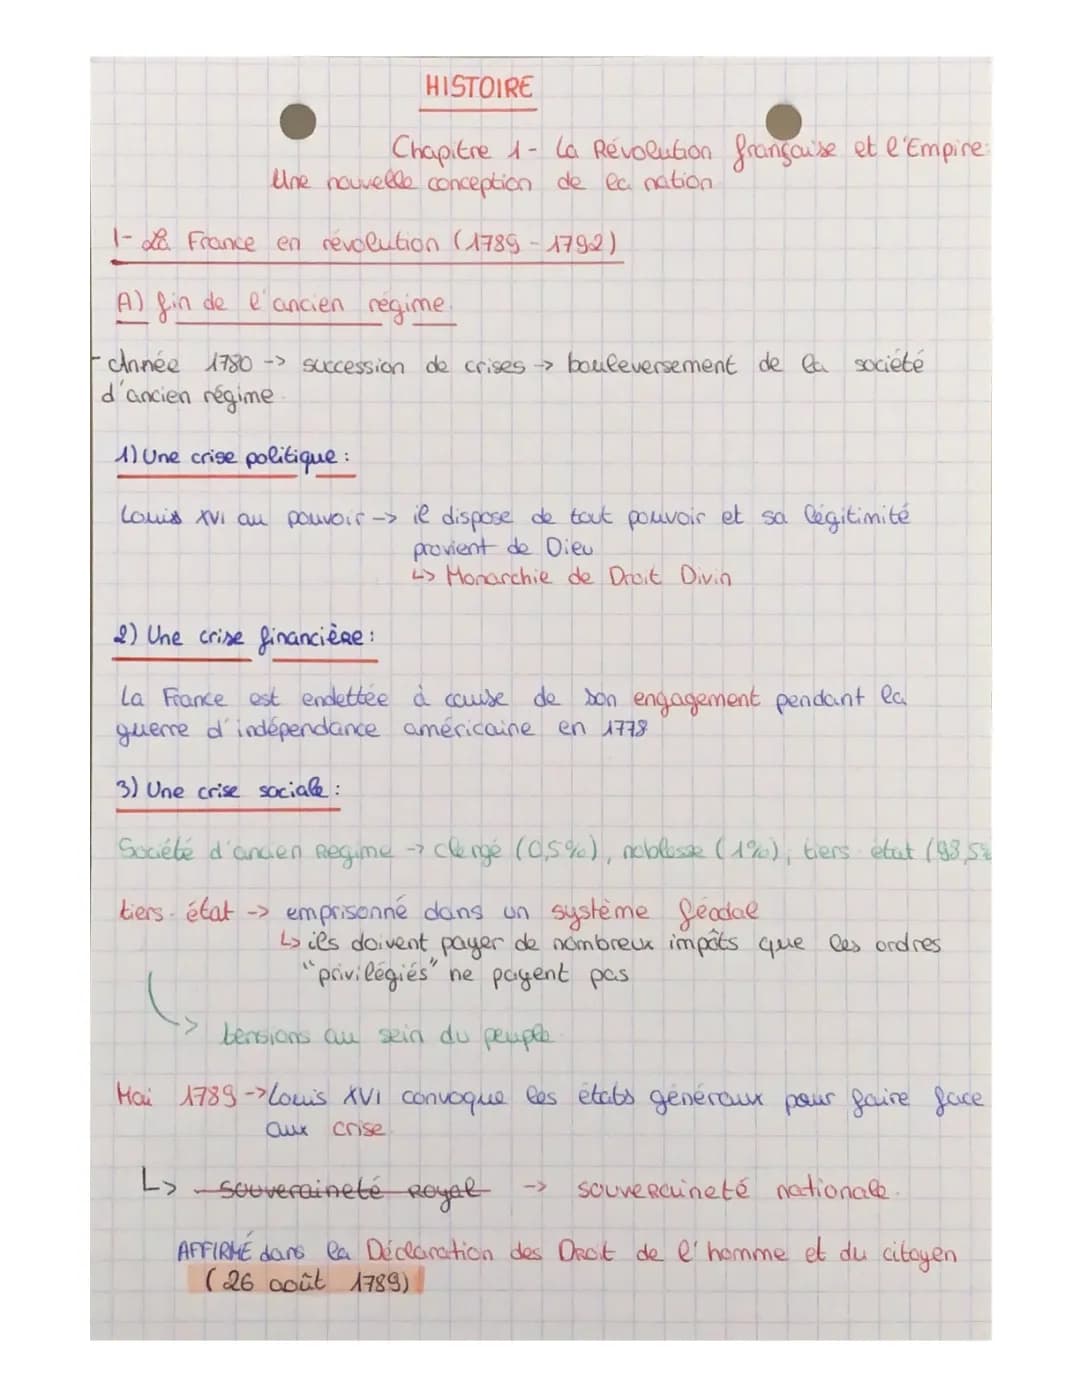 HISTOIRE
Chapitre 1- La Révolution française et l'Empire:
Une nouvelle conception de la nation
1- La France en révolution (1789 - 1792)
A) fin de l'ancien régime.
- Année 1780 -> succession de crises -> bouleversement de la société
d'ancien régime.
1) Une crise politique :
Louis XVI au pouvoir -> il dispose de tout pouvoir et sa légitimité
provient de Dieu
↳ Monarchie de Droit Divin
2) Une crise financière :
La France est endettée à cause de son engagement pendant la
guerre d'indépendance américaine en 1778
3) Une crise sociale :
Société d'ancien Régime -> clergé (0,5%), noblesse (1%), tiers état (98,5%
tiers état -> emprisonné dans un système féodal
↳ ils doivent payer de nombreux impôts que les ordres
"privilégiés" ne payent pas
-> tensions au sein du peuple.
Mai 1789 -> Louis XVI convoque les états généraux pour faire face
aux crise.
↳ souveraineté Royal -> souveraineté nationale.
AFFIRMÉ dans la Déclaration des Droit de l'homme et du citoyen
(26 août 1789)